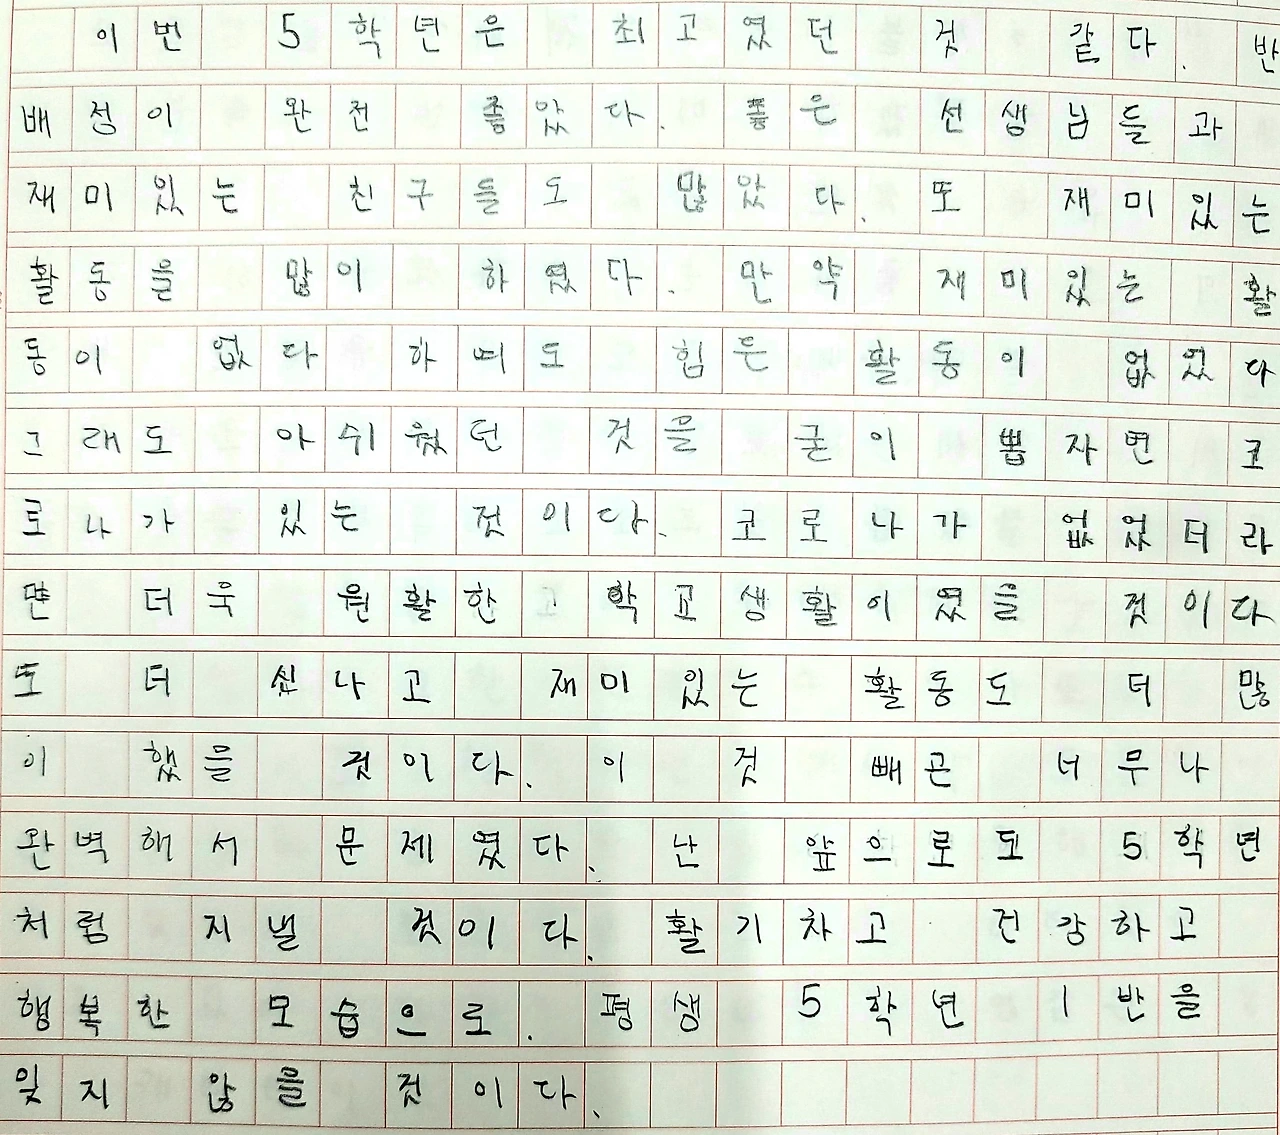 이번 5학년은 최고였던 것 같다. 반
배정이 완전 좋았다. 좋은 선생님들과
재미있는 친구들도 많았다. 또 재미있는
활동을 많이 하였다. 만약 재미있는 활
동이 없다 하여도 힘든 활동이 없었다
그래도 아쉬웠던 것을 굳이 뽑자면 코
로나가 있는 것이다. 코로나가 없었더라
면 더욱 원활한 학교생활이였을 것이다
또 더 신나고 재미있는 활동도 더 많
이 했을 것이다. 이 것 빼곤 너무나
완벽해서 문제였다. 난 앞으로도 5학년
처럼 지낼 것이다. 활기차고 건강하고
행복한 모습으로. 평생 5학년 1반을
잊지 않을 것이다.